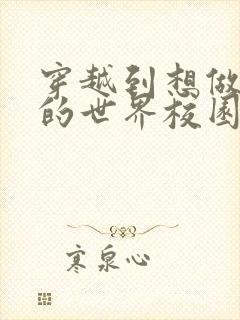 穿越到想做
的世界校园
寒泉心